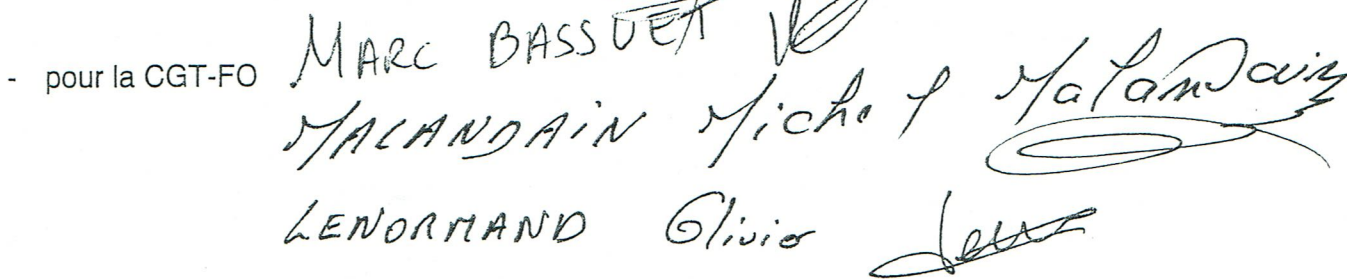 - pour la CGT-FO MARC BASSUET
MALANDAIN Michel Malandain
LENORMAND Olivier